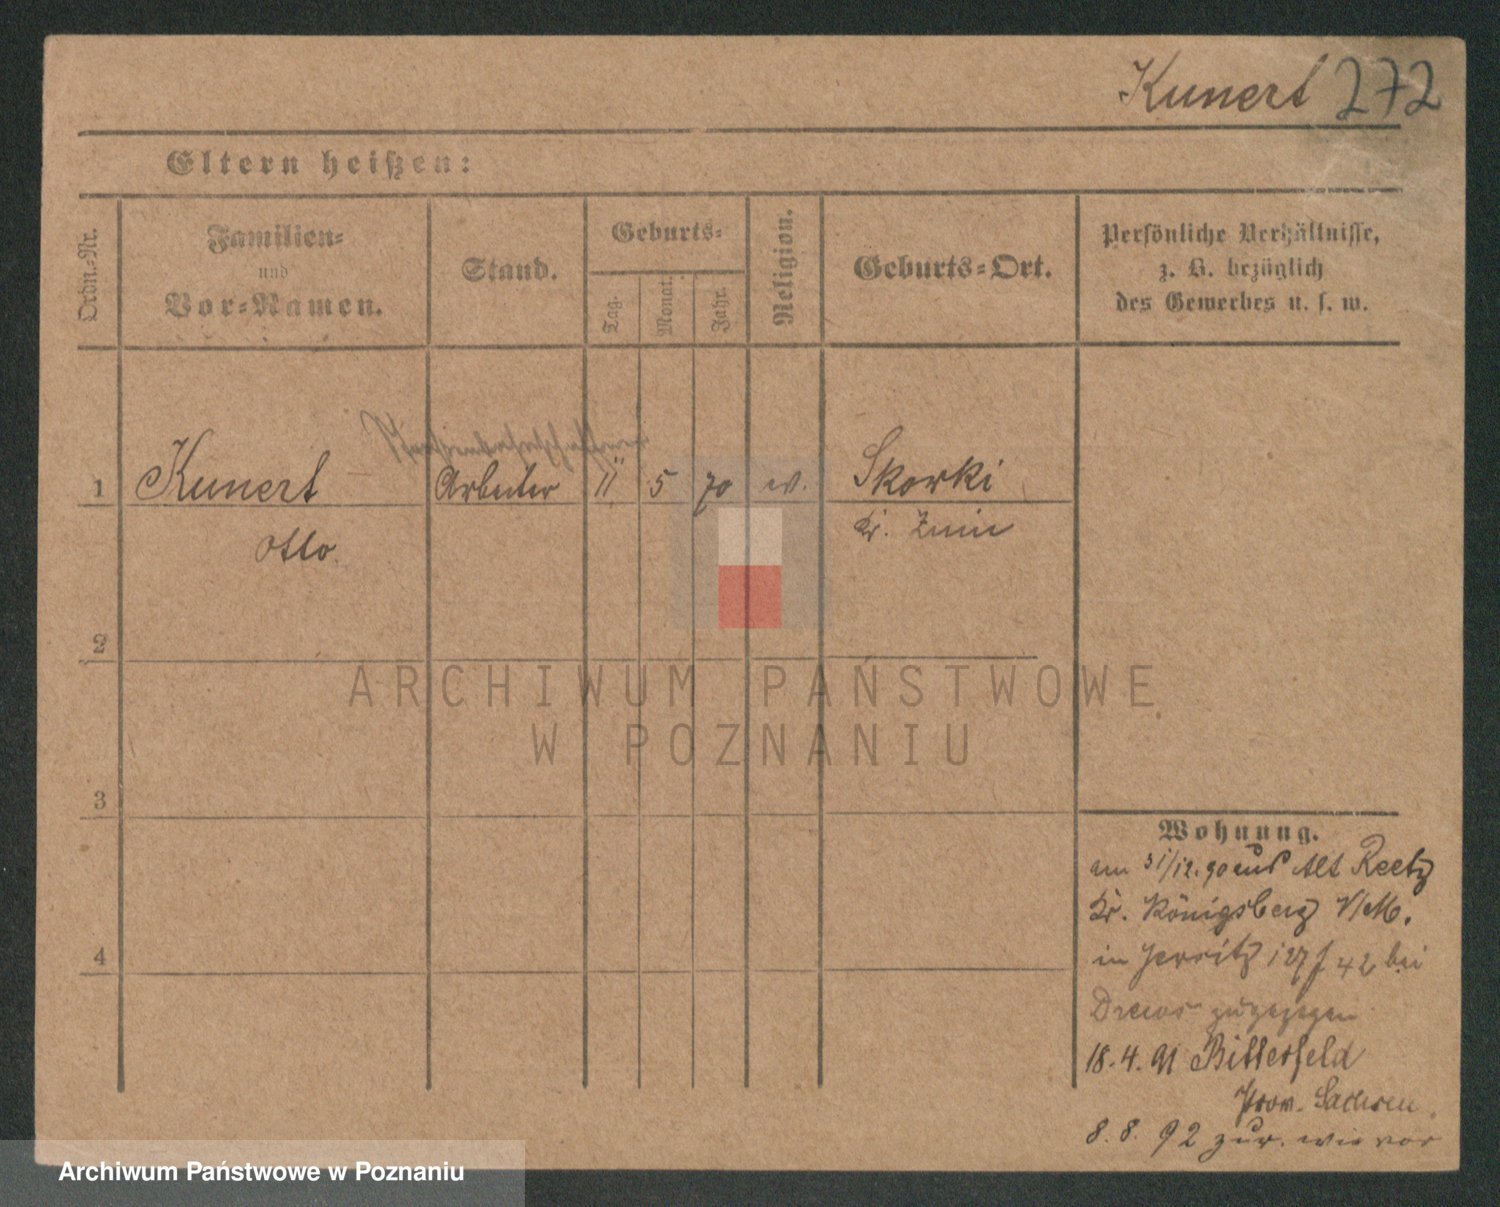 Kunert 272
Eltern heißen:
Ordn.-Nr.
Familien-
und
Vor-Namen.
Stand.
Geburts-
Tag.
Monat.
Jahr.
Religion.
Geburts-Ort.
Persönliche Verhältnisse,
z. B. bezüglich
des Gewerbes u. s. w.
1 Kunert Arbeiter 11 5 70 ev. Skorki
Otto. Kr. Znin
2
3
4
Wohnung.
am 31/12.90 aus Alt Reetz
Kr. Königsberg N/M.
in Jersitz 127 f 42 bei
Drews zugezogen
18.4.91 Bitterfeld
Prov. Sachsen.
8.8.92 zur. wie vor
ARCHIWUM PAŃSTWOWE
W POZNANIU
Archiwum Państwowe w Poznaniu